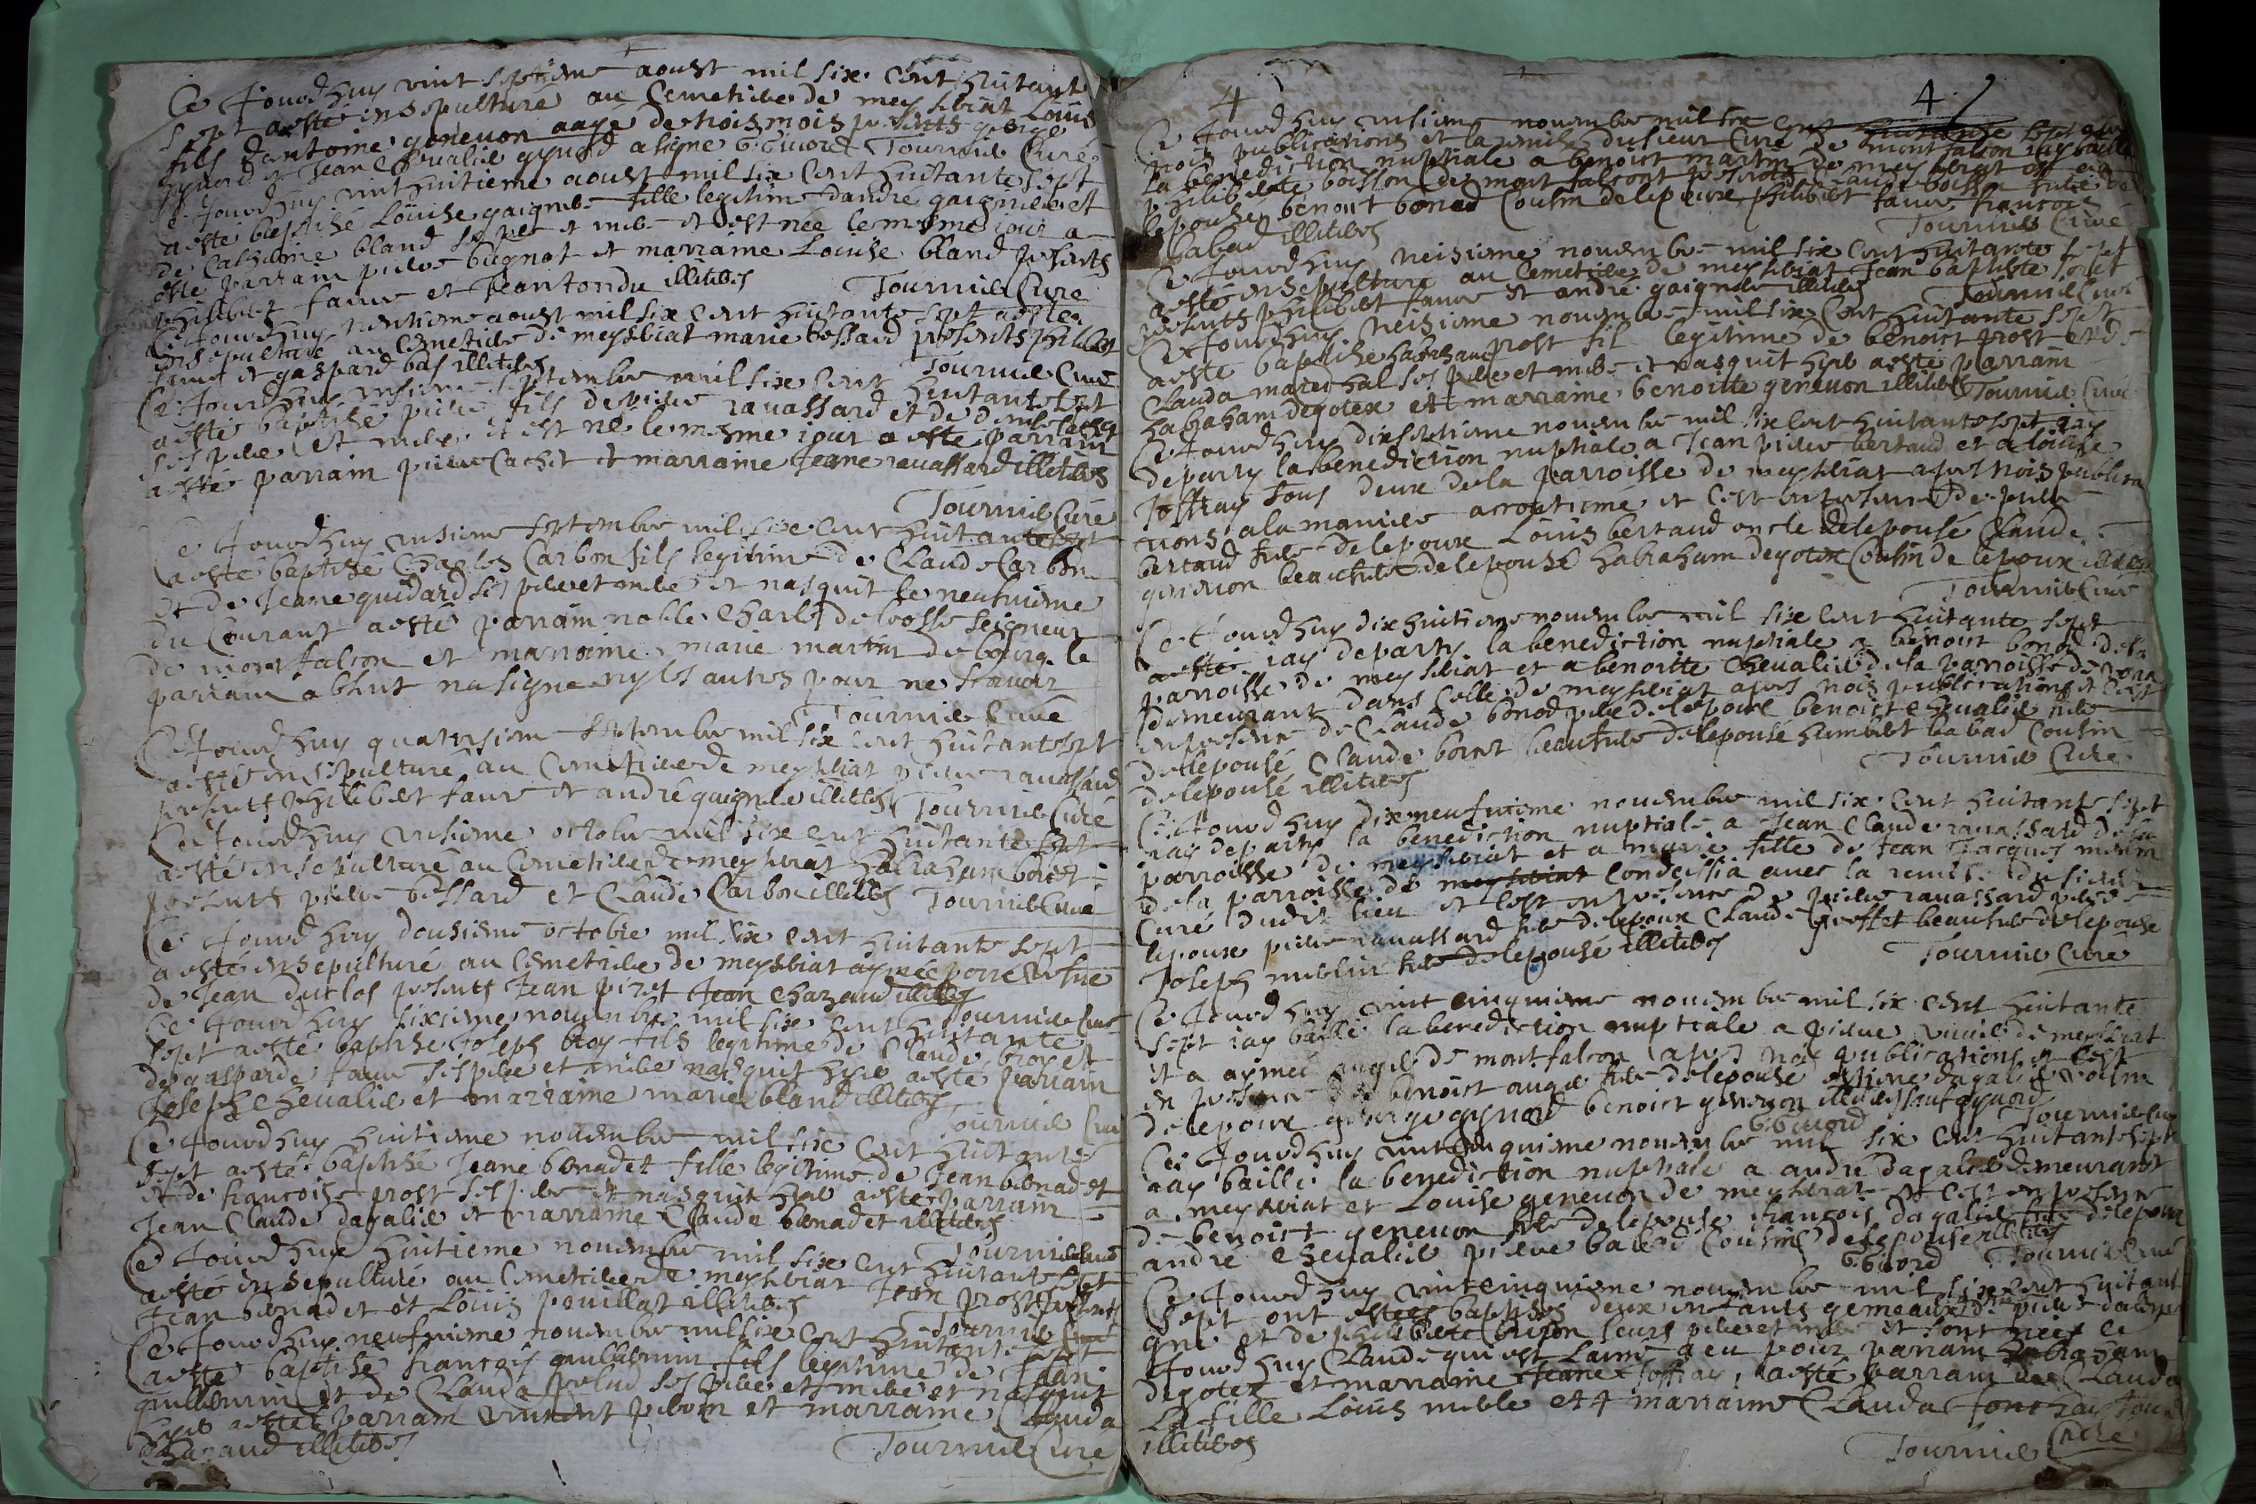 Ce Jourdhuy vint septieme aoust mil six cent huitante
sept a esté insepulturé au Cemetiere de meyseriat Louis
fils dantoine geneuon aage de trois mois presents george
gyuord et Jean Cheualie gyuord a signe G Giuord Tournie Curé
Ce Jourdhuy vint huitieme aoust mil six cent huitante sept
a esté baptisé Louise gaignere fille legitime dandre gaignere et
de Catherine bland ses pere et mere et est née le mesme iour a
esté parrain piere bugnot et marraine Louise bland presents
philibert faure et Jean tondu illiteres Tournie Cure
Ce Jourdhuy trentieme aoust mil six cent huitante sept a esté
insepulturé au Cemetiere de meyseriat marie bossard presents philibert
faure et gaspard bas illiteres Tournie Cure
Ce Jourdhuy unsieme septembre mil six cent huitante sept
a esté baptisé piere fils de piere rauassard et de Cachet
ses pere et mere et est né le mesme iour a esté parrain
a esté parrain piere Cachet et marraine Jeane rauassard illiteres
Tournie Curé
Ce Jourdhuy unsieme septembre mil six cent huitante sept
a esté baptisé Charles Carbon fils legitime de Claude Carbon
et de Jeane guidard ses pere et mere et nasquit le neufuieme
du Courant a esté parrain noble Charle de Cosse Seigneur
de montfalcon et marraine marie martin de bourg le
parrain absent na signe ny les autres pour ne scauoir
Tournie Curé
Ce Jourdhuy quatorsieme septembre mil six cent huitante sept
a esté insepulturé au Cemetiere de meyseriat piere rauassard
presents philibert faure et andre gaignere illiteres Tournie Curé
Ce Jourdhuy unsieme octobre mil six cent huitante sept
a esté insepulturé au Cemetiere de meyseriat habraham boret
presents piere bossard et Claude Carbon illiteres Tournie Cure
Ce Jourdhuy dousieme octobre mil six cent huitante sept
a esté insepulturé au Cemetiere de meyseriat aymée
de Jean duclos presents Jean piret Jean Chazaud illiteres
Tournie Cure
Ce Jourdhuy sixieme nouembre mil six cent huitante
sept a esté baptisé Joseph broy fils legitime de Claude broy et
de gasparde faure ses pere et mere nasquit hyer a esté parrain
Joseph Cheualie et marraine marie bland illiteres
Tournie Cure
Ce Jourdhuy huitieme nouembre mil six cent huitante
sept a esté baptisé Jeane benadet fille legitime de Jean benadet
et de francoise prost ses pere et nasquit hyer a esté parrain
Jean Claude dagalie et marraine Claude benadet illiteres
Tournie Cure
Ce Jourdhuy huitieme nouembre mil six cent huitante sept
a esté insepulturé au Cemetiere de meyseriat Jean prost presents
Jean benadet et Louis pouillat illiteres
Tournie Cure
Ce Jourdhuy neufuieme nouembre mil six cent huitante sept
a esté baptisé francois guillermin fils legitime de Jean
guillermin et de Clauda prelud ses pere et mere et nasquit
hyer a esté parrain vincent et marraine Clauda
Chazaud illiteres Tournie Cure
4 4
Ce Jourdhuy unsieme nouembre mil six cent huitante sept apres
trois publications et la remise du sieur Cure de montfalcon iay baillé
la benediction nuptiale a benoist martin de meyseriat et a
philiberte boisson de montfalcont presents boisson frere de
lepouse benoit bonod Cousin de lepoux philibert faure francois
babad illiteres Tournie Curé
Ce Jourdhuy treisieme nouembre mil six cent huitante sept
a esté insepulturé au Cemetiere de meyseriat Jean baptiste
presents philibert faure et andre gaignere illiteres Tournie Cure
Ce Jourdhuy treisieme nouembre mil six cent huitante sept
a esté baptisé habraham prost fil legitime de benoist prost et de
Clauda marechal ses pere et mere et nasquit hyer a esté parrain
habraham degotex et marraine benoitte geneuon illiteres Tournie Cure
Ce Jourdhuy dixseptieme nouembre mil six cent huitante sept iay
departy la benediction nuptiale a Jean piere bertaud et a louise
Joffray tous deux de la parroisse de meyseriat apres trois publica
tions a la maniere accoutumé et cest en presence de piere
bertaud frere de lepoux Louis bertaud oncle de lepousé Claude
geneuon beaufrere de lepousé habraham degotex Cousin de lepoux
Tournie Cure
Ce Jourdhuy dix huitieme nouembre mil six cent huitante sept
iay departy la benediction nuptiale a benoist bonod de la
parroisse de meyseriat et a benoitte Cheualie de la parroisse de
demeurant dans celle de meyseriat apres trois publications et cest
en presence de Claude bonod pere de lepoux benoist Cheualie frere
de lepousé Claude boret beaufrere de lepousé humbert babad Cousin
de lepousé illiteres Tournie Cure
Ce Jourdhuy dix neufuieme nouembre mil six cent huitante sept
iay departy la benediction nuptiale a Jean Claude rauassard de la
parroisse de meyseriat et a marie fille de Jean Jacques
de la parroisse de meyseriat Condeissia auec la remise du sieur
Curé dudit lieu et cest en presence de piere rauassard pere de
lepoux piere rauassard frere de lepoux Claude beaufrere de lepouse
Joseph frere de lepousé illiteres Tournie Cure
Ce Jourdhuy vint cinquieme nouembre mil six cent huitante
sept iay baille la benediction nuptiale a piere de meyseriat
et a aymée auge de montfalcon apres trois publications et cest
en presence de benoist auge frere de lepouse dagalie Cousin
de lepoux george gyuord benoist geneuon illiteres sauf gyuord
G Giuord Tournie Cure
Ce Jourdhuy vintcinquieme nouembre mil six cent huitante sept
iay baille la benediction nuptiale a andre dagalie demeurant
a meyseriat et Louise geneuon de meyseriat et cest en presence
de benoist geneuon frere de lepouse francois dagalie frere de lepoux
andre Cheualie piere Cousins de lepouse illiteres
G Giuord Tournie Curé
Ce Jourdhuy vintcinquieme nouembre mil six cent huitante
sept ont estees baptisés deux enfants gemeaux de piere
et de philiberte leurs pere et mere et sont néés ce
Jourdhuy Claude qui est Laine a eu pour parrain habraham
degotex et marraine Jeane Joffray, a esté parrain de Clauda
La fille Louis et marraine Clauda
illiteres Tournie Cure